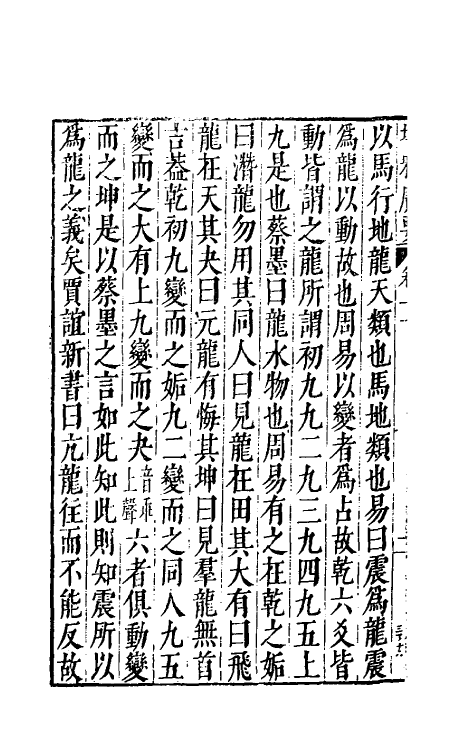 以馬行地龍天類也馬地類也易曰震爲龍震
爲龍以動故也周易以變者爲占故乾六爻皆
動皆謂之龍所謂初九九二九三九四九五上
九是也蔡墨曰龍水物也周易有之在乾之姤
曰潛龍勿用其同人曰見龍在田其大有曰飛
龍在天其夬曰亢龍有悔其坤曰見羣龍無首
吉葢乾初九變而之姤九二變而之同人九五
變而之大有上九變而之夬上聲六者俱動變
而之坤是以蔡墨之言如此知此則知震所以
爲龍之義矣賈誼新書曰亢龍往而不能反故